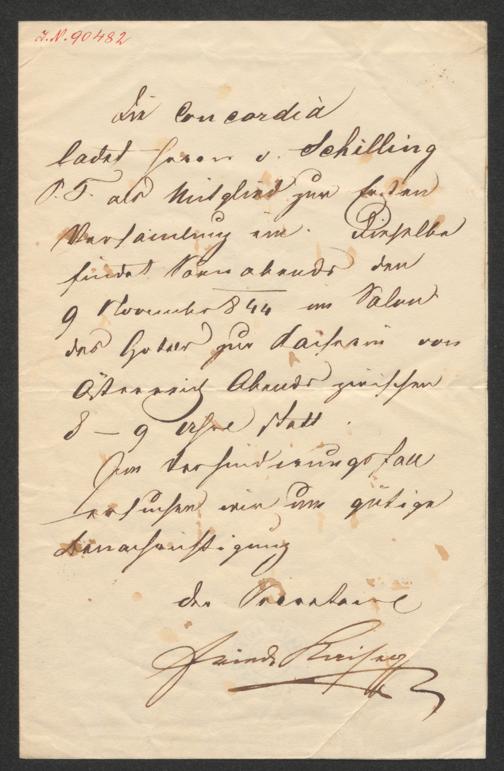 I.N. 90482
Die Concordia
ladet Herrn v. Schilling
P. T. als Mitglied zur ersten
Versamlung ein. Dieselbe
findet Sonnabends den
9 November 844 im Salon
des Hotels zur Kaiserin von
Österreich Abends zwischen
8 – 9 Uhr statt.
Im Verhinderungsfall
ersuchen wir um gütige
Benachrichtigung
der Secretaire
Friedr Kaiser